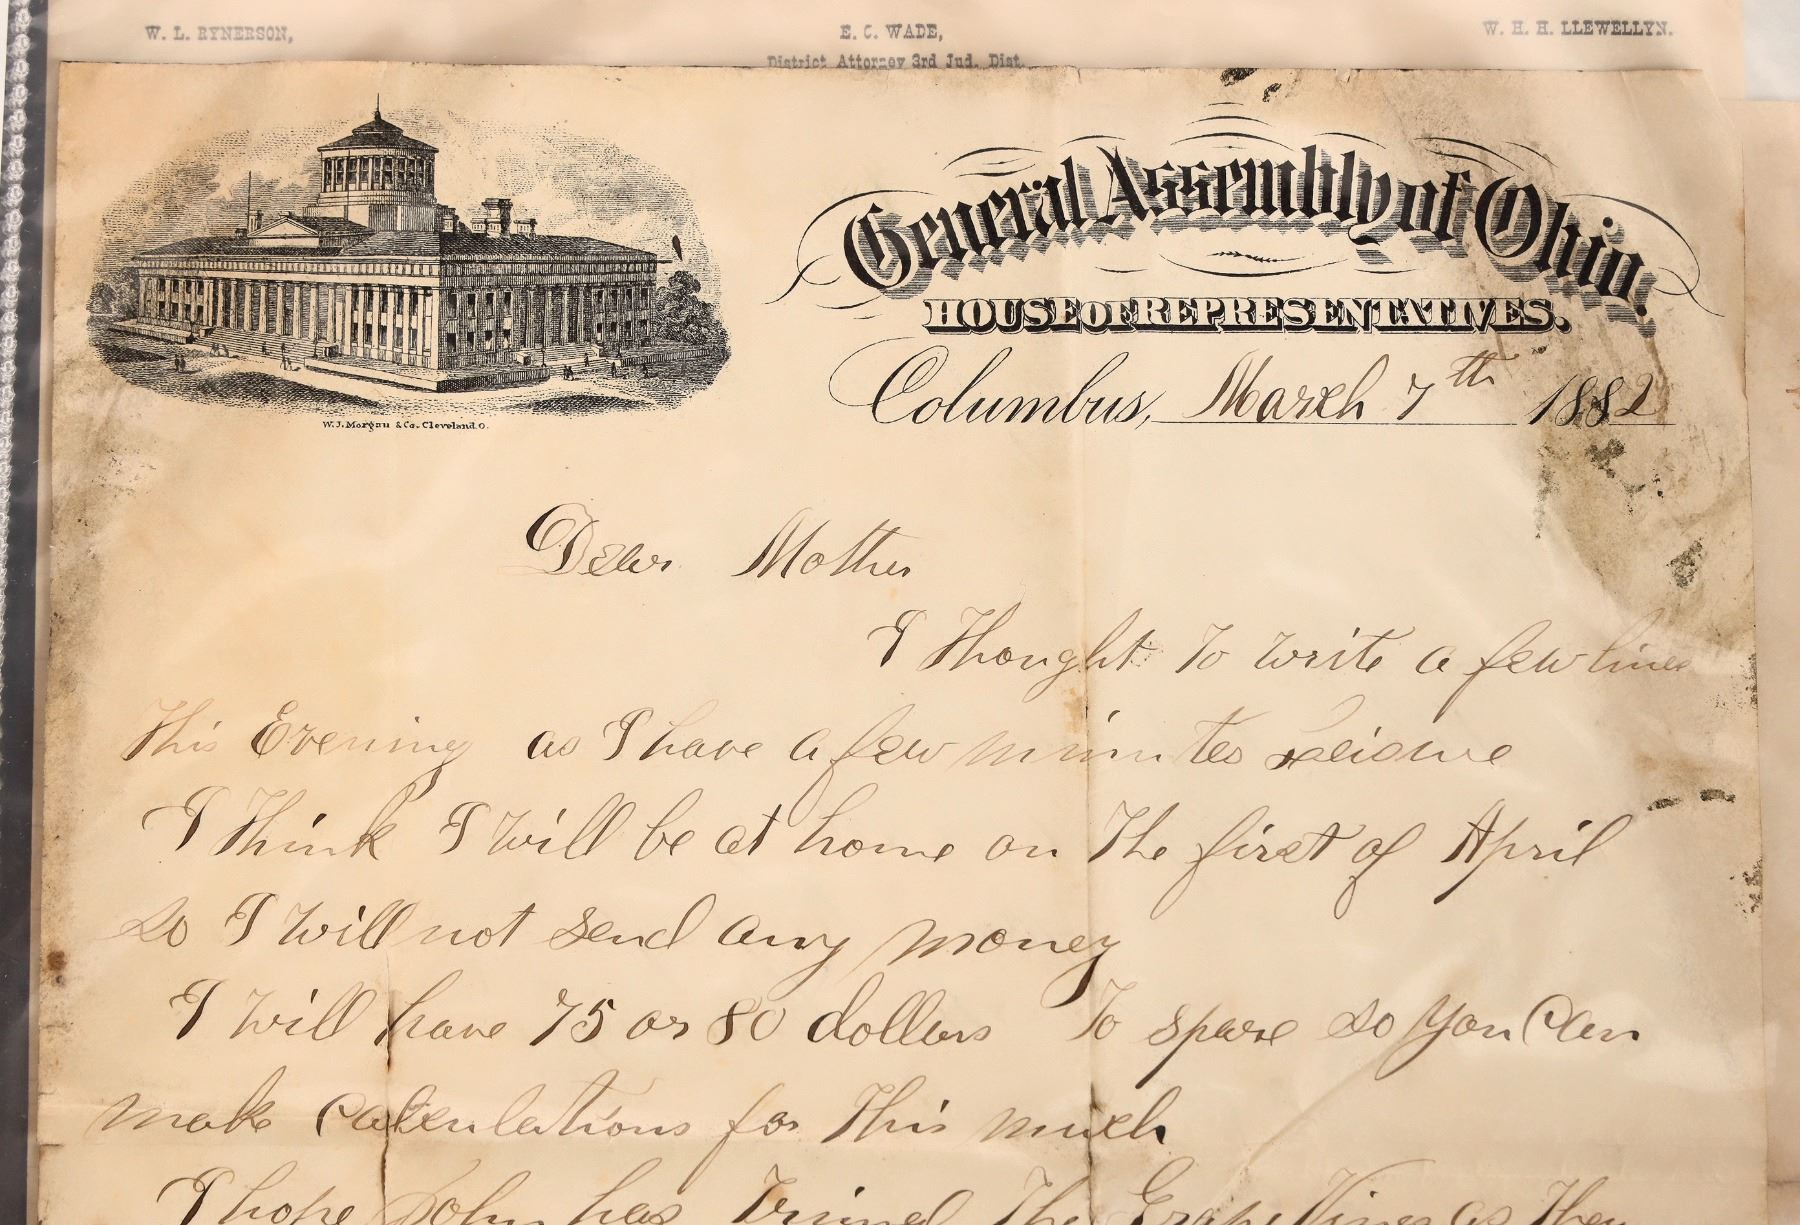 W. L. RYNERSON,
E. C. WADE,
W. H. H. LLEWELLYN.
District Attorney 3rd Jud. Dist.
General Assembly of Ohio.
HOUSE OF REPRESENTATIVES.
Columbus, March 7th 1882
W.J. Morgan & Co. Cleveland. O.
Dear Mother
I Thought To write a few lines
This Evening as I have a few minutes Leisure
I Think I will be at home on The first of April
so I will not send any money
I will have 75 or 80 dollars To spare so you Can
make Calculations for This much
I hope John has Trimed The Grape Vines as They